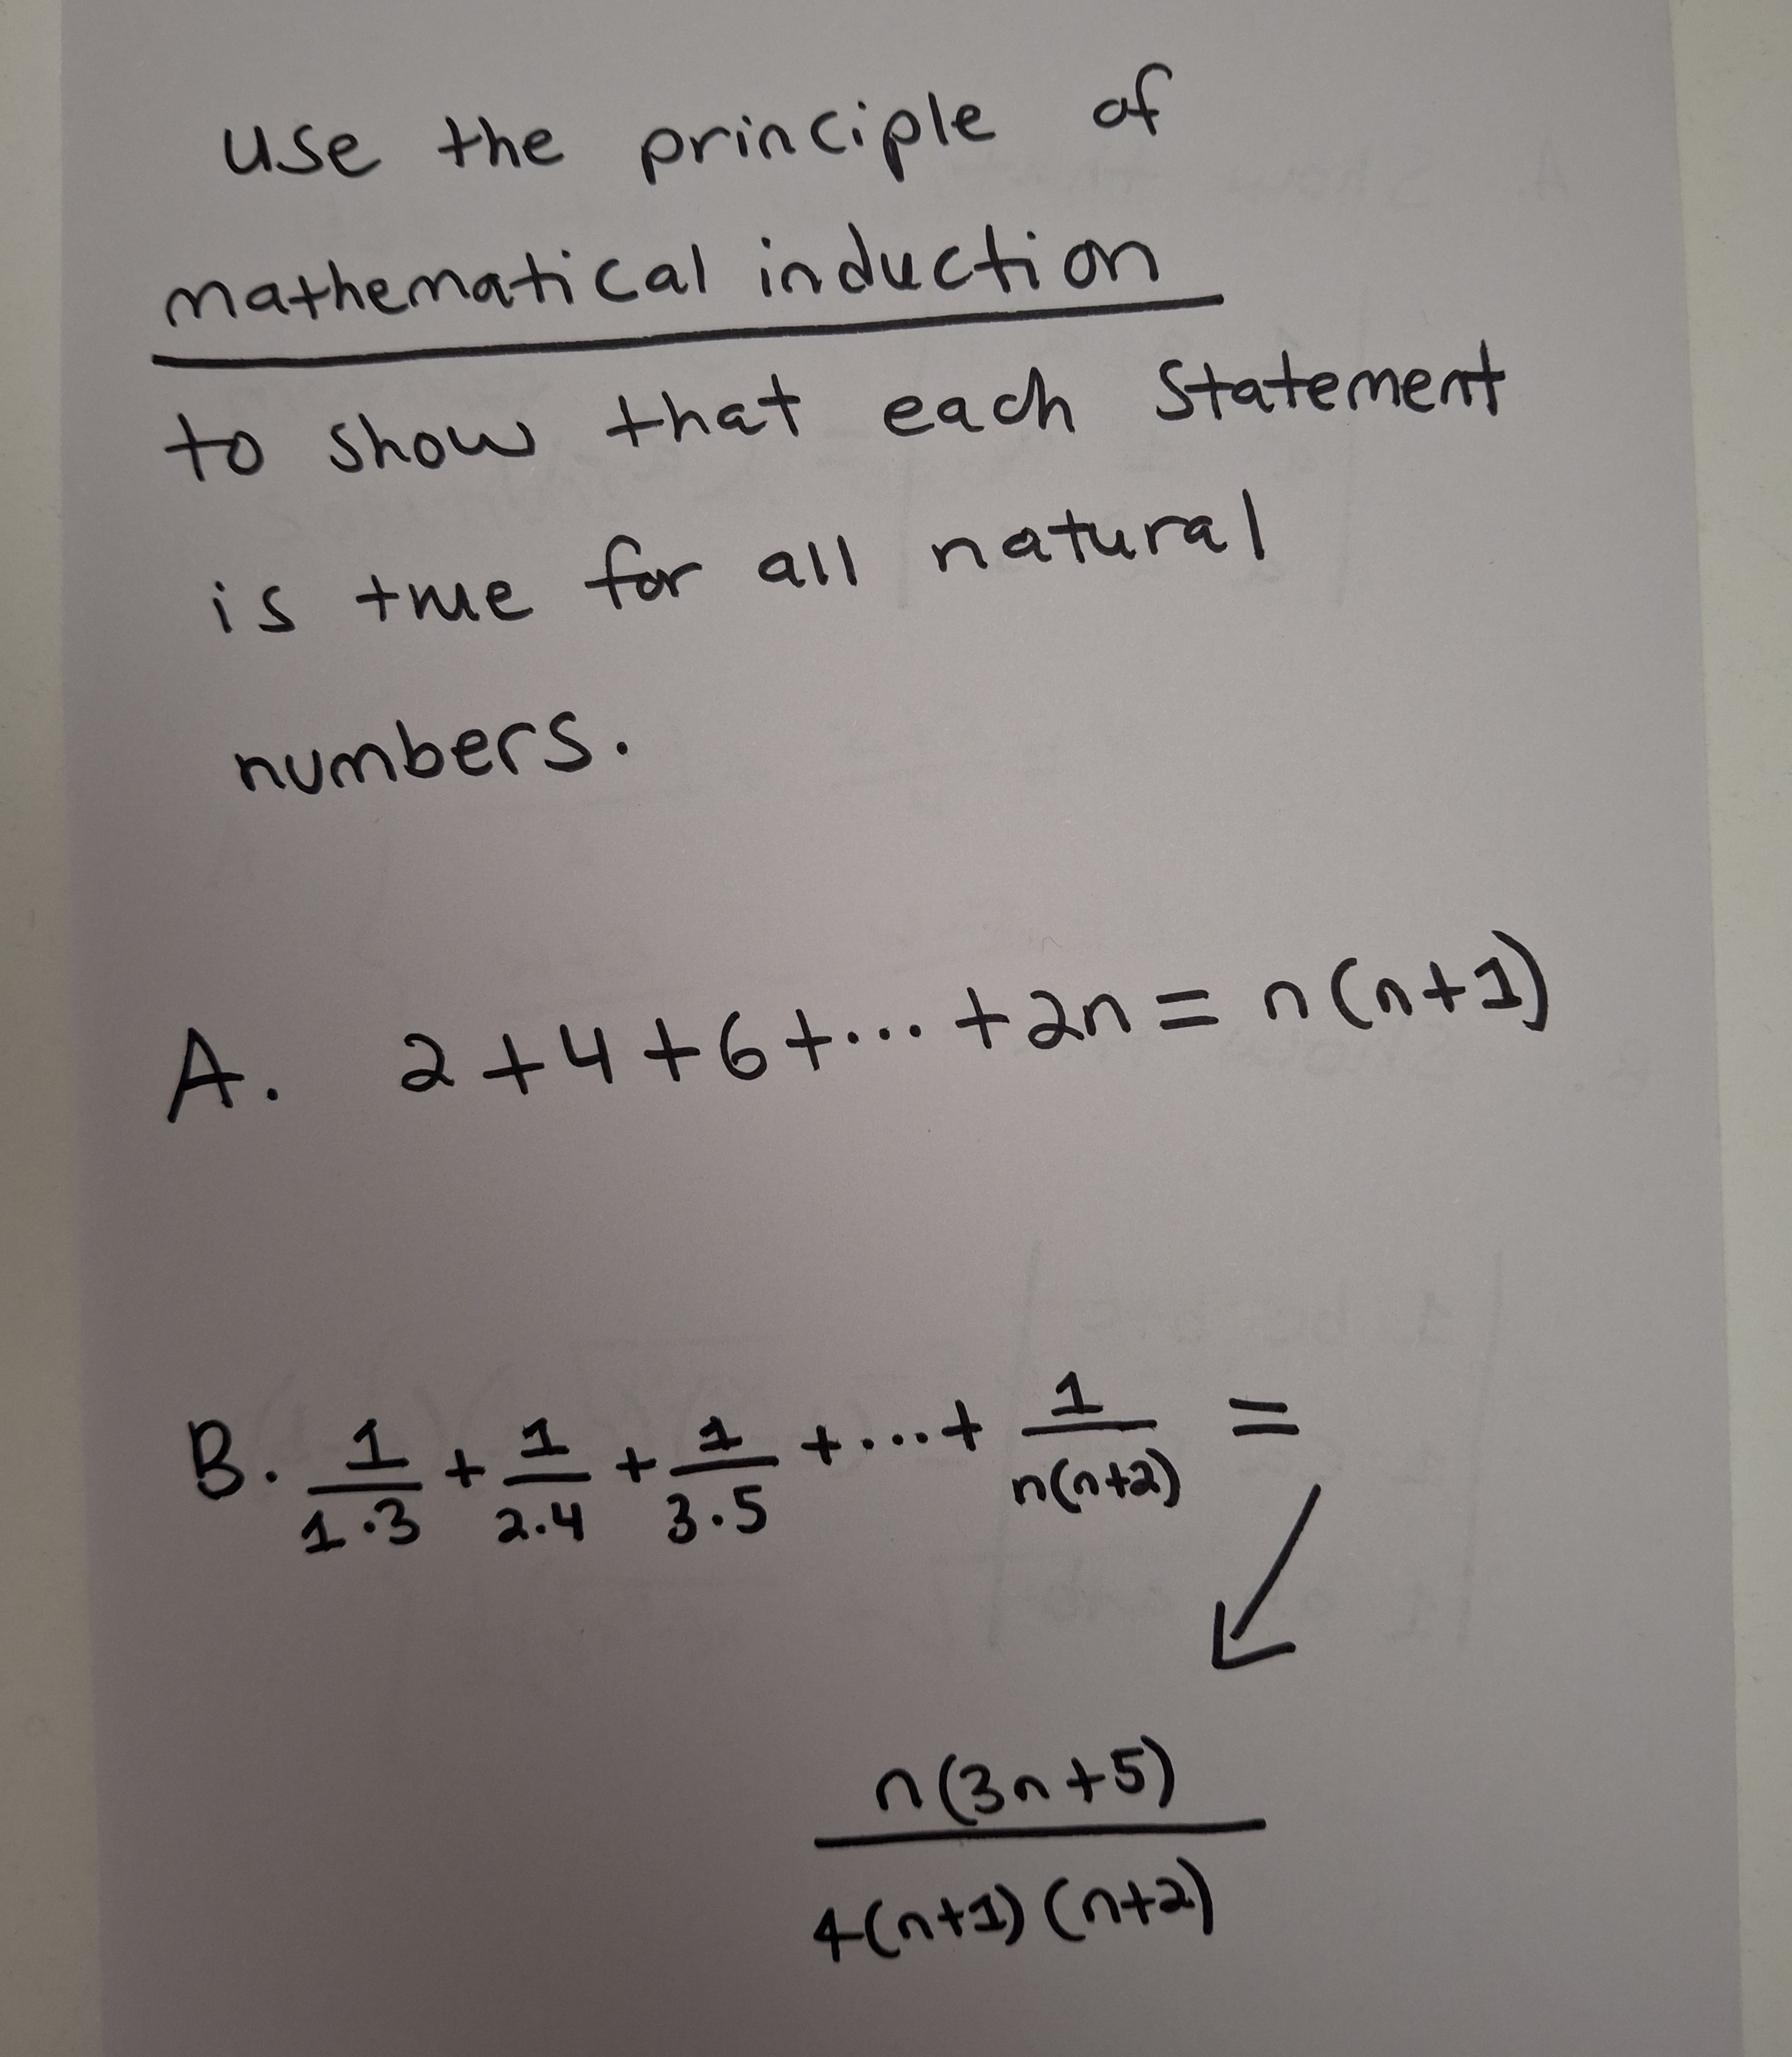 use the principle of
mathematical induction
to show that each statement
is true for all natural
numbers.
A. 2+4+6+...+2n = n(n+1)
B. 1/1·3 + 1/2·4 + 1/3·5 +...+ 1/n(n+2) =
n(3n+5)
4(n+1)(n+2)